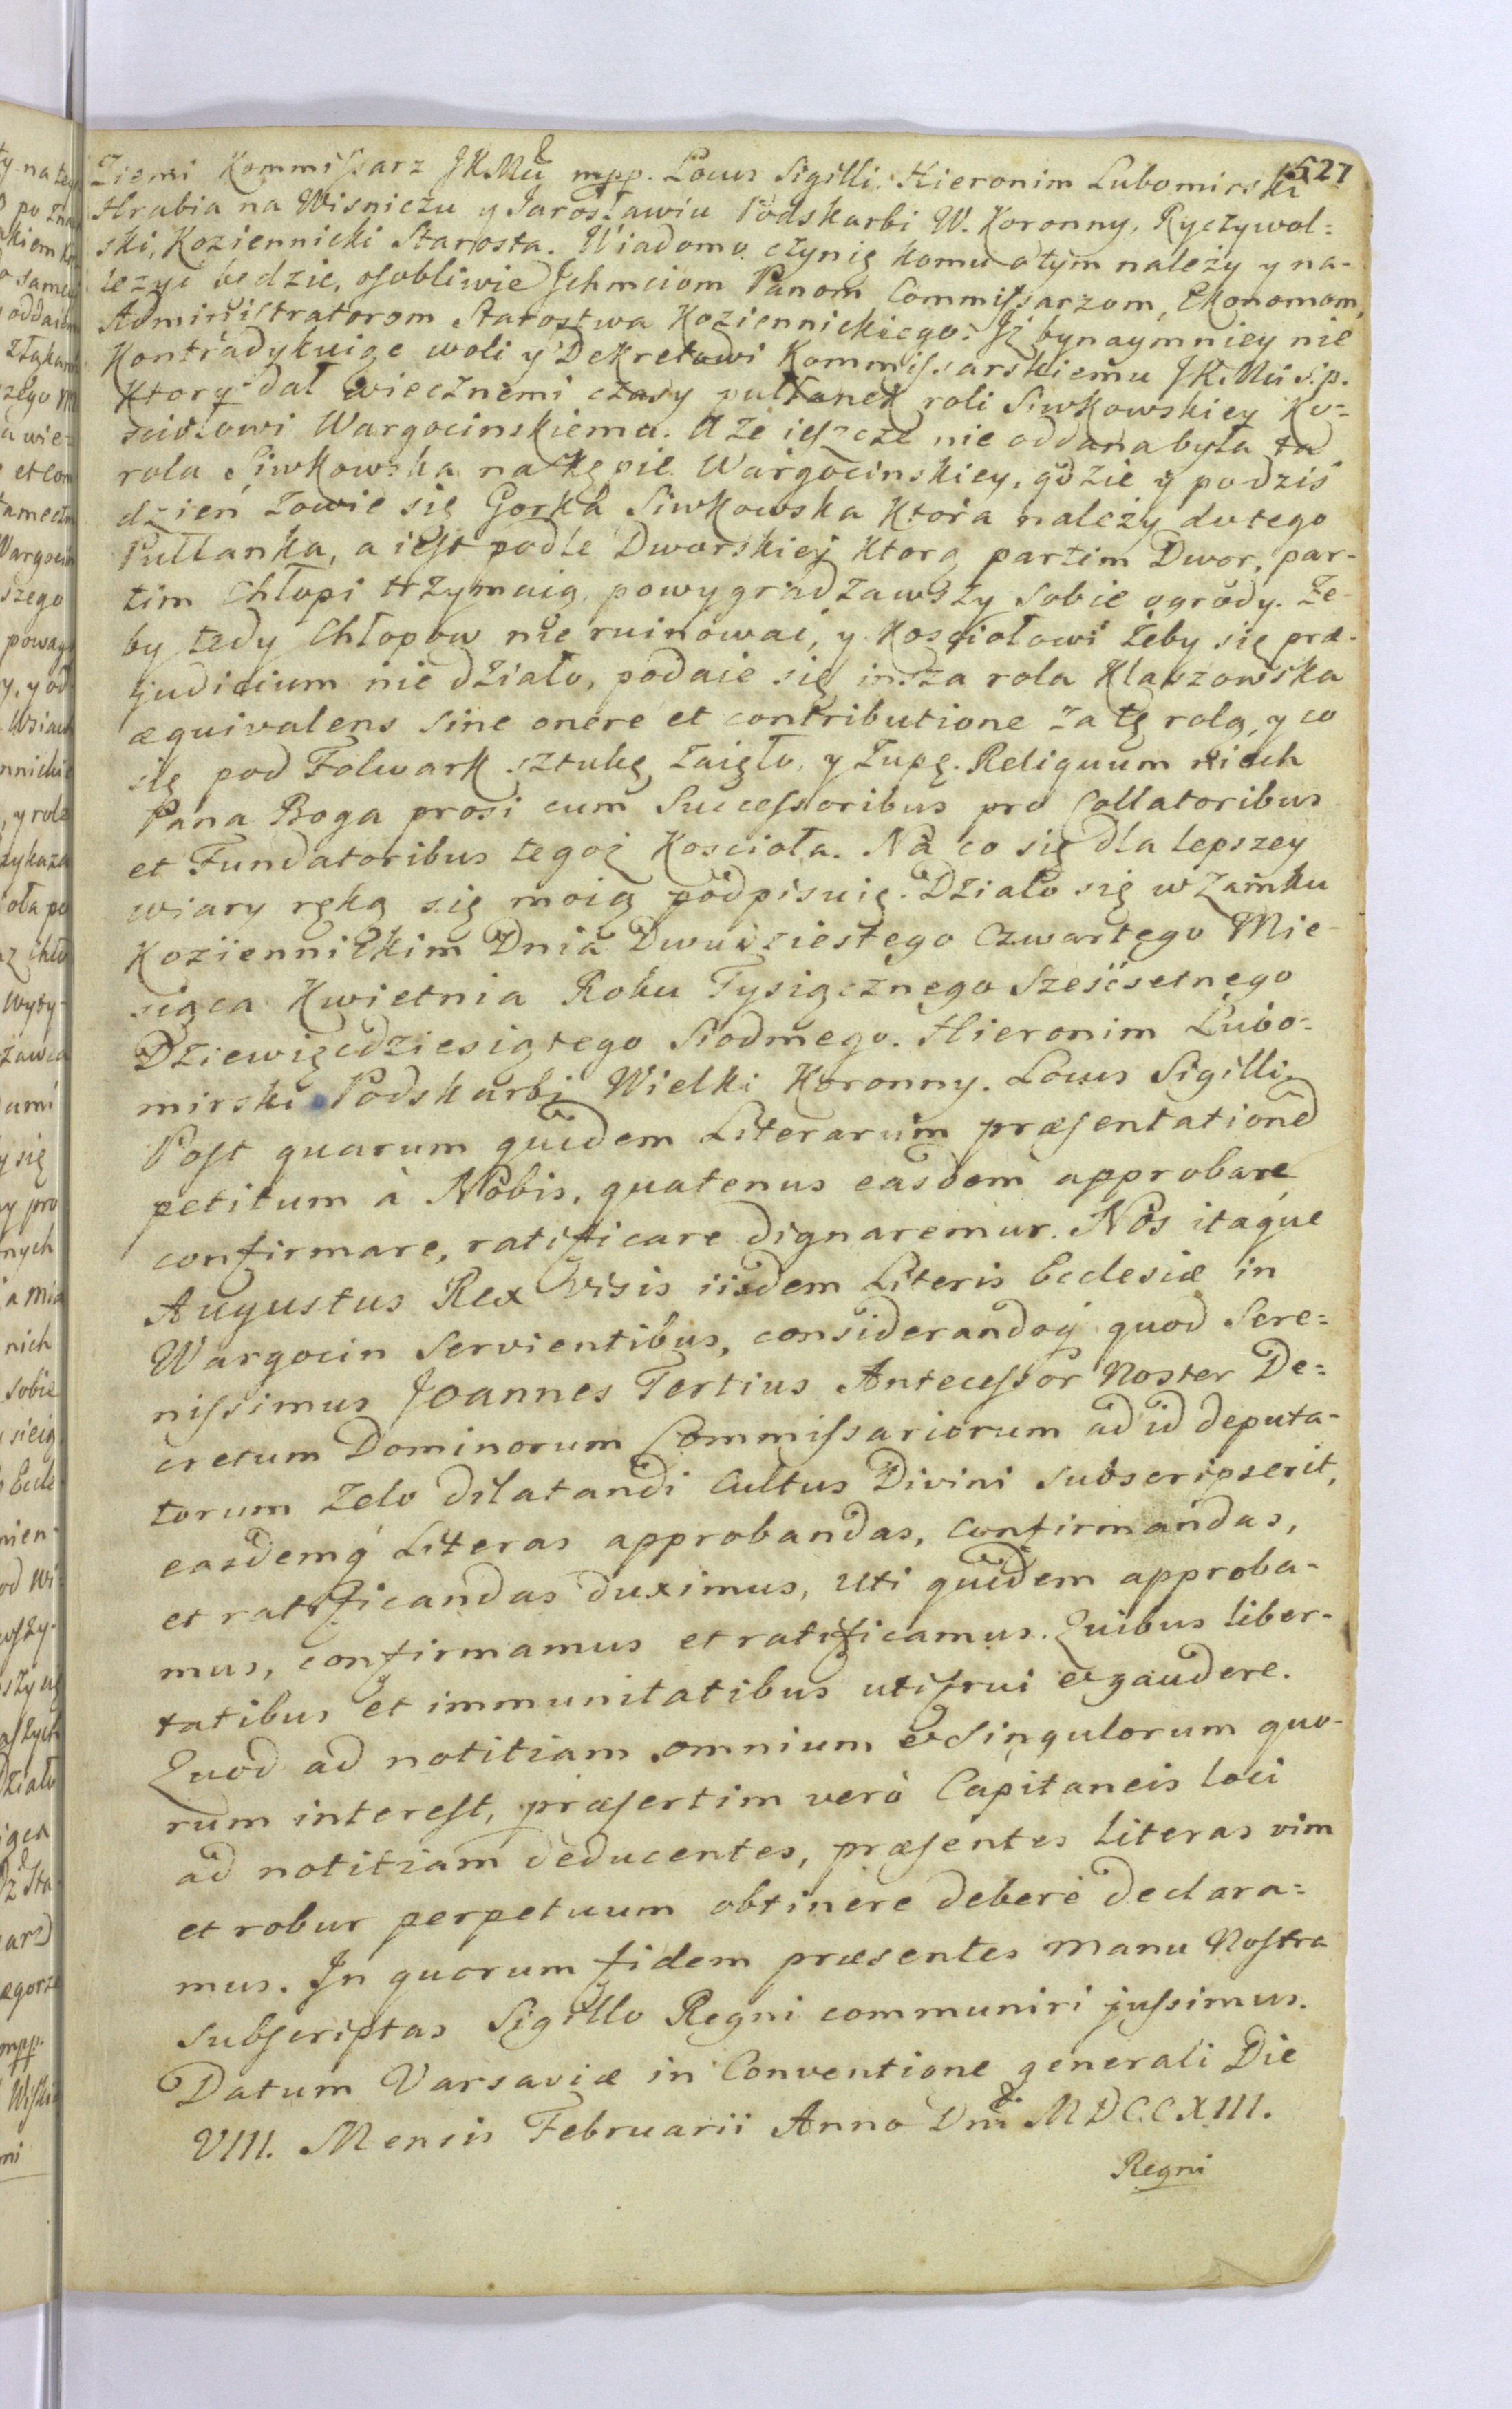 527
Ziemi Kommissarz JKMci mpp. Locus Sigilli. Hieronim Lubomirski
Hrabia na Wisniczu y Jarosławiu Podskarbi W. Koronny, Ryczywol=
ski, Koziennicki Starosta. Wiadomo czynię komu o tym należy y na-
lezyć będzie, osobliwie Jchmciom Panom Commissarzom, Ekonomom,
Administratorom Starostwa Koziennickiego. Jż bynaymniey nie
Kontradykuiąc woli y Dekretowi Kommissarskiemu JK. Mci s.p.
Ktory dał wiecznemi czasy pułłanek roli Siwkowskiey Ko=
sciołowi Wargocinskiemu. A że ieszcze nie oddana była ta
rola Siwkowska na Kępie Wargocinskiey, gdzie y podziś
dzień zowie się Gorka Siwkowska Ktora należy do tego
Pułłanka, a iest podle Dworskiey Ktorą partim Dwor, par-
tim Chłopi trzymaią, powygradzawszy sobie ogrody. Ze-
by tedy Chłopow nie ruinować, y Kosciołowi żeby się præ-
judicium nie działo, podaie się insza rola Klaszowska
æquivalens sine onere et contributione za tę rolą, y co
się pod Folwark sztukę zaięło, y Łupę. Reliquum niech
Pana Boga prosi cum Successoribus pro Collatoribus
et Fundatoribus tegoż Koscioła. Na co się dla lepszey
wiary ręką się moią podpisuię. Działo się w Zamku
Koziennickim Dnia Dwudziestego Czwartego Mie-
siąca Kwietnia Roku Tysiącznego Sześćsetnego
Dziewięcdziesiątego Siodmego. Hieronim Lubo=
mirski Podskarbi Wielki Koronny. Locus Sigilli.
Post quarum quidem Literarum præsentationẽ
petitum à Nobis, quatenus easdem approbare
confirmare, ratificare dignaremur. Nos itaque
Augustus Rex visis iisdem Literis Ecclesiæ in
Wargocin Servientibus, considerandoq́ quod Sere=
nissimus Joannes Tertius Antecessor Noster De=
cretum Dominorum Commissariorum ad id deputa-
torum Zelo dilatandi Cultus Divini subscripserit,
easdemq́ Literas approbandas, confirmandas,
et ratificandas duximus, uti quidem approba-
mus, confirmamus et ratificamus. Quibus liber-
tatibus et immunitatibus uti frui & gaudere.
Quod ad notitiam omnium & singulorum quo-
rum interest, præsertim verò Capitaneis loci
ad notitiam deducentes, præsentes literas vim
et robur perpetuum obtinere debere declara=
mus. In quorum fidem præsentes manu Nostra
subscriptas Sigillo Regni communiri jussimus.
Datum Varsaviæ in Conventione generali Die
VIII. Mensis Februarii Anno Dni MDCCXIII.
Regni